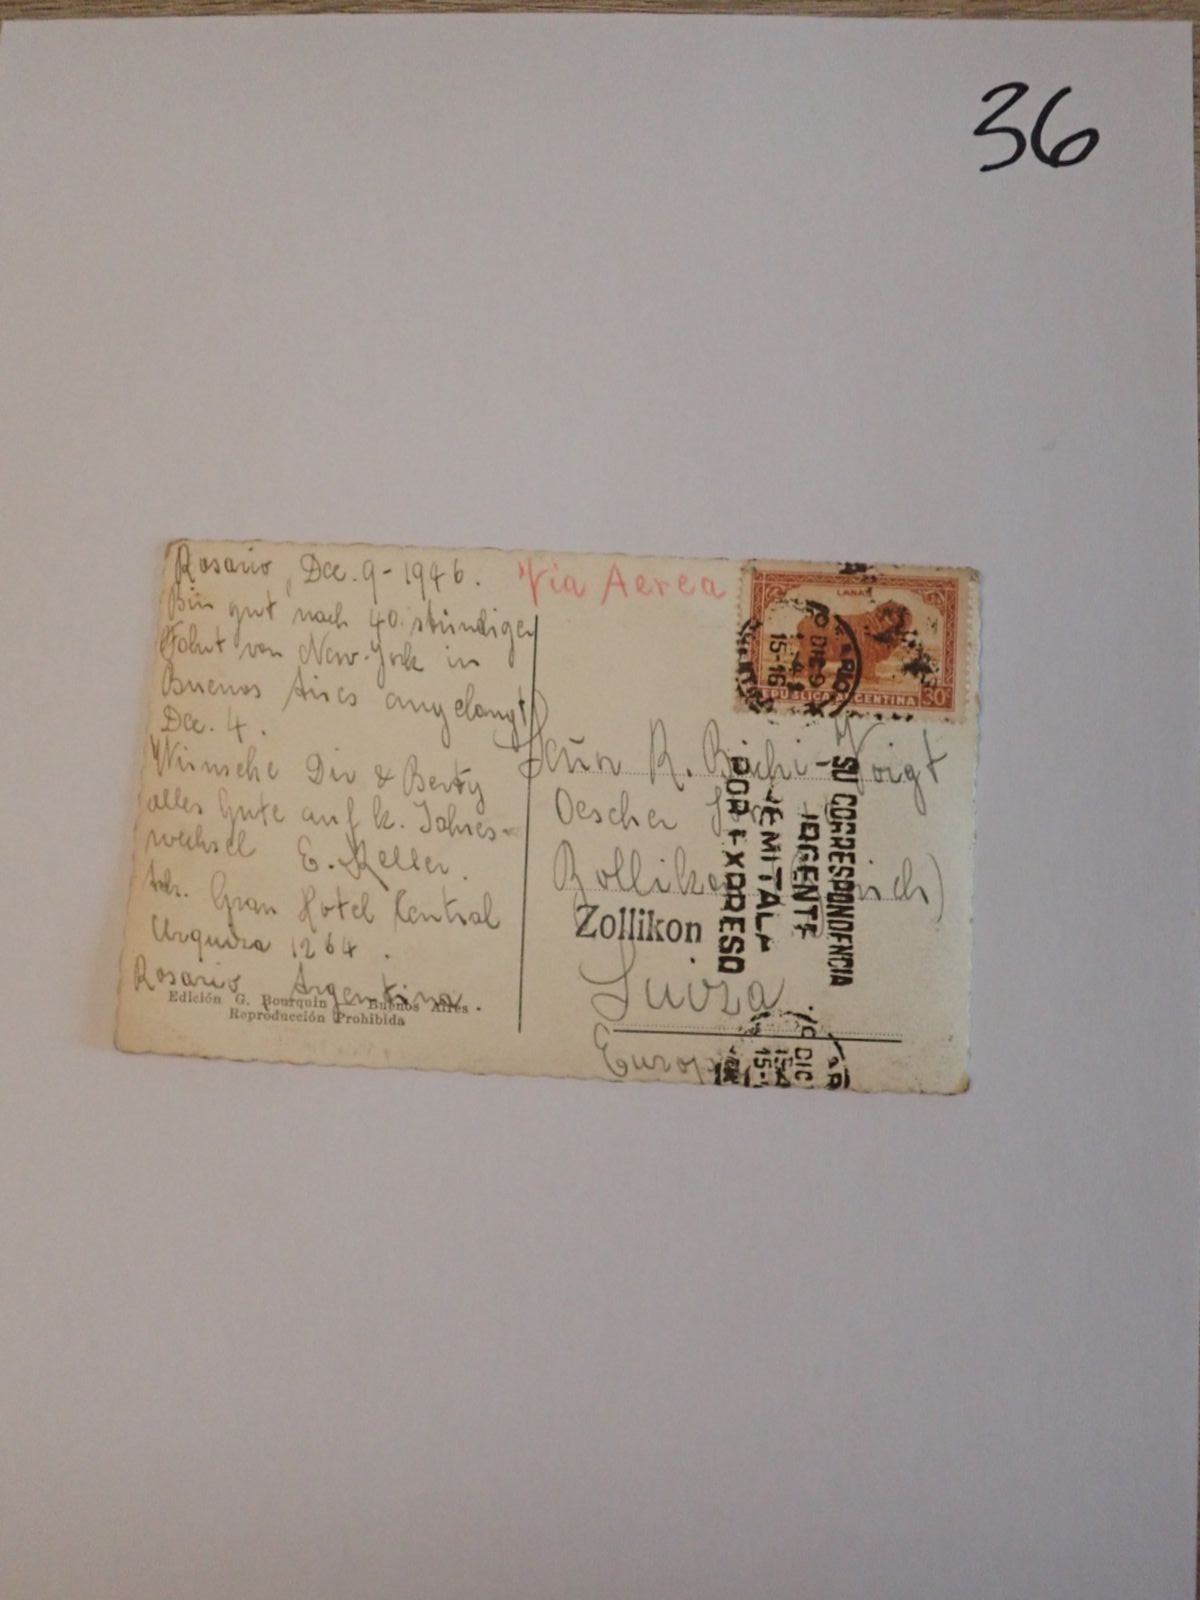 36
Rosario, Dec. 9 - 1946.
Bin gut nach 40 stündiger
Fahrt von New-York in
Buenos Aires angelangt
Dec. 4.
Wünsche Dir & Berty
alles Gute auf k. Jahres-
wechsel E. Keller.
Adr. Gran Hotel Central
Urquiza 1264.
Rosario Argentina.
Edición G. Bourquin Buenos Aires
Reproducción Prohibida
Via Aerea
LANAS
REPUBLICA ARGENTINA 30c
DIC 9
15-16
R. Voigt
Oescher
Zollikon
Zollikon
Suiza
Europa
SU CORRESPONDENCIA
URGENTE
REMITALA
POR EXPRESO
DIC
15-